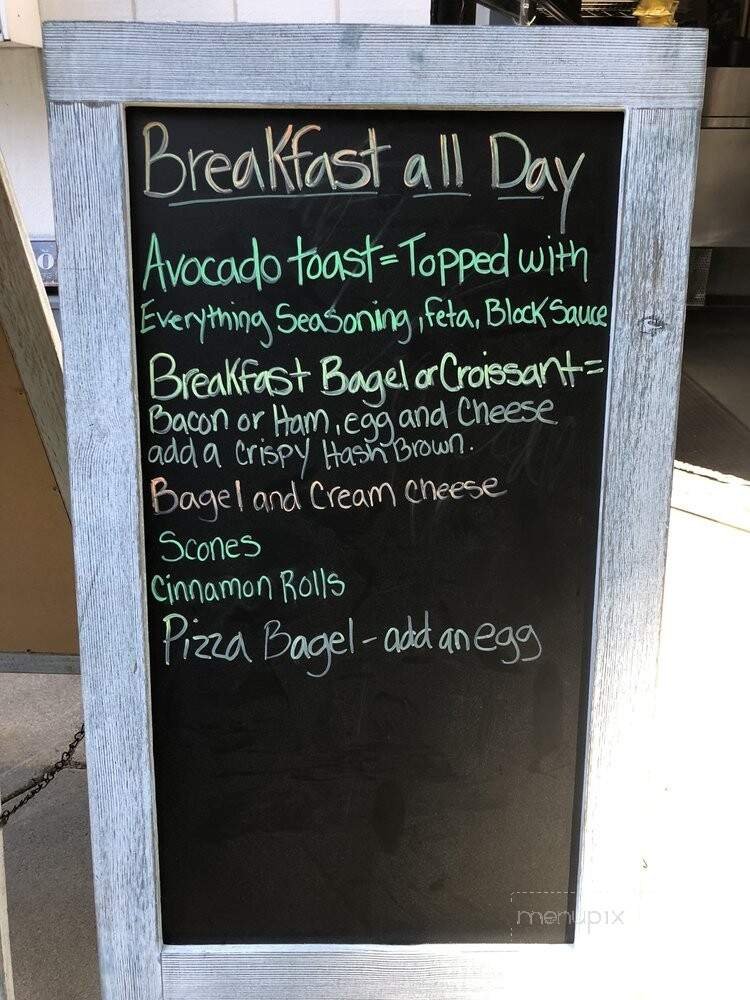 Breakfast all Day
Avocado toast = Topped with
Everything Seasoning, feta, Block Sauce
Breakfast Bagel or Croissant =
Bacon or Ham, egg and Cheese
add a Crispy Hash Brown.
Bagel and Cream Cheese
Scones
Cinnamon Rolls
Pizza Bagel - add an egg
menupix